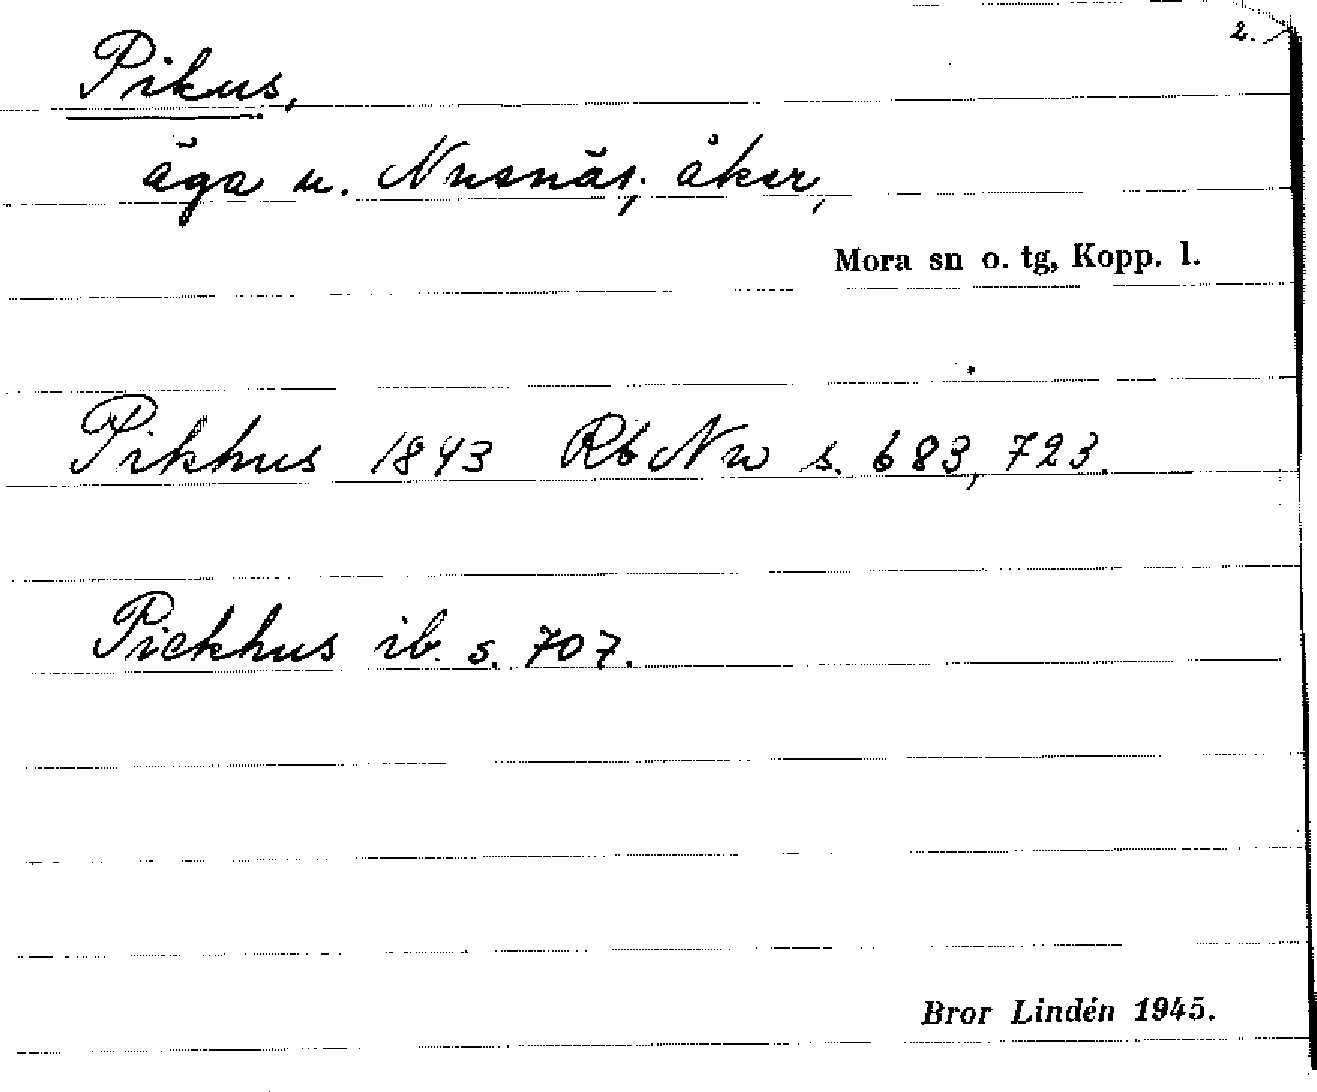 2.
Pikus,
äga u. Nusnäs; åker,
Mora sn o. tg, Kopp. l.
Pikhus 1843 Rb Nw s. 683, 723.
Pickhus ib. s. 707.
Bror Lindén 1945.